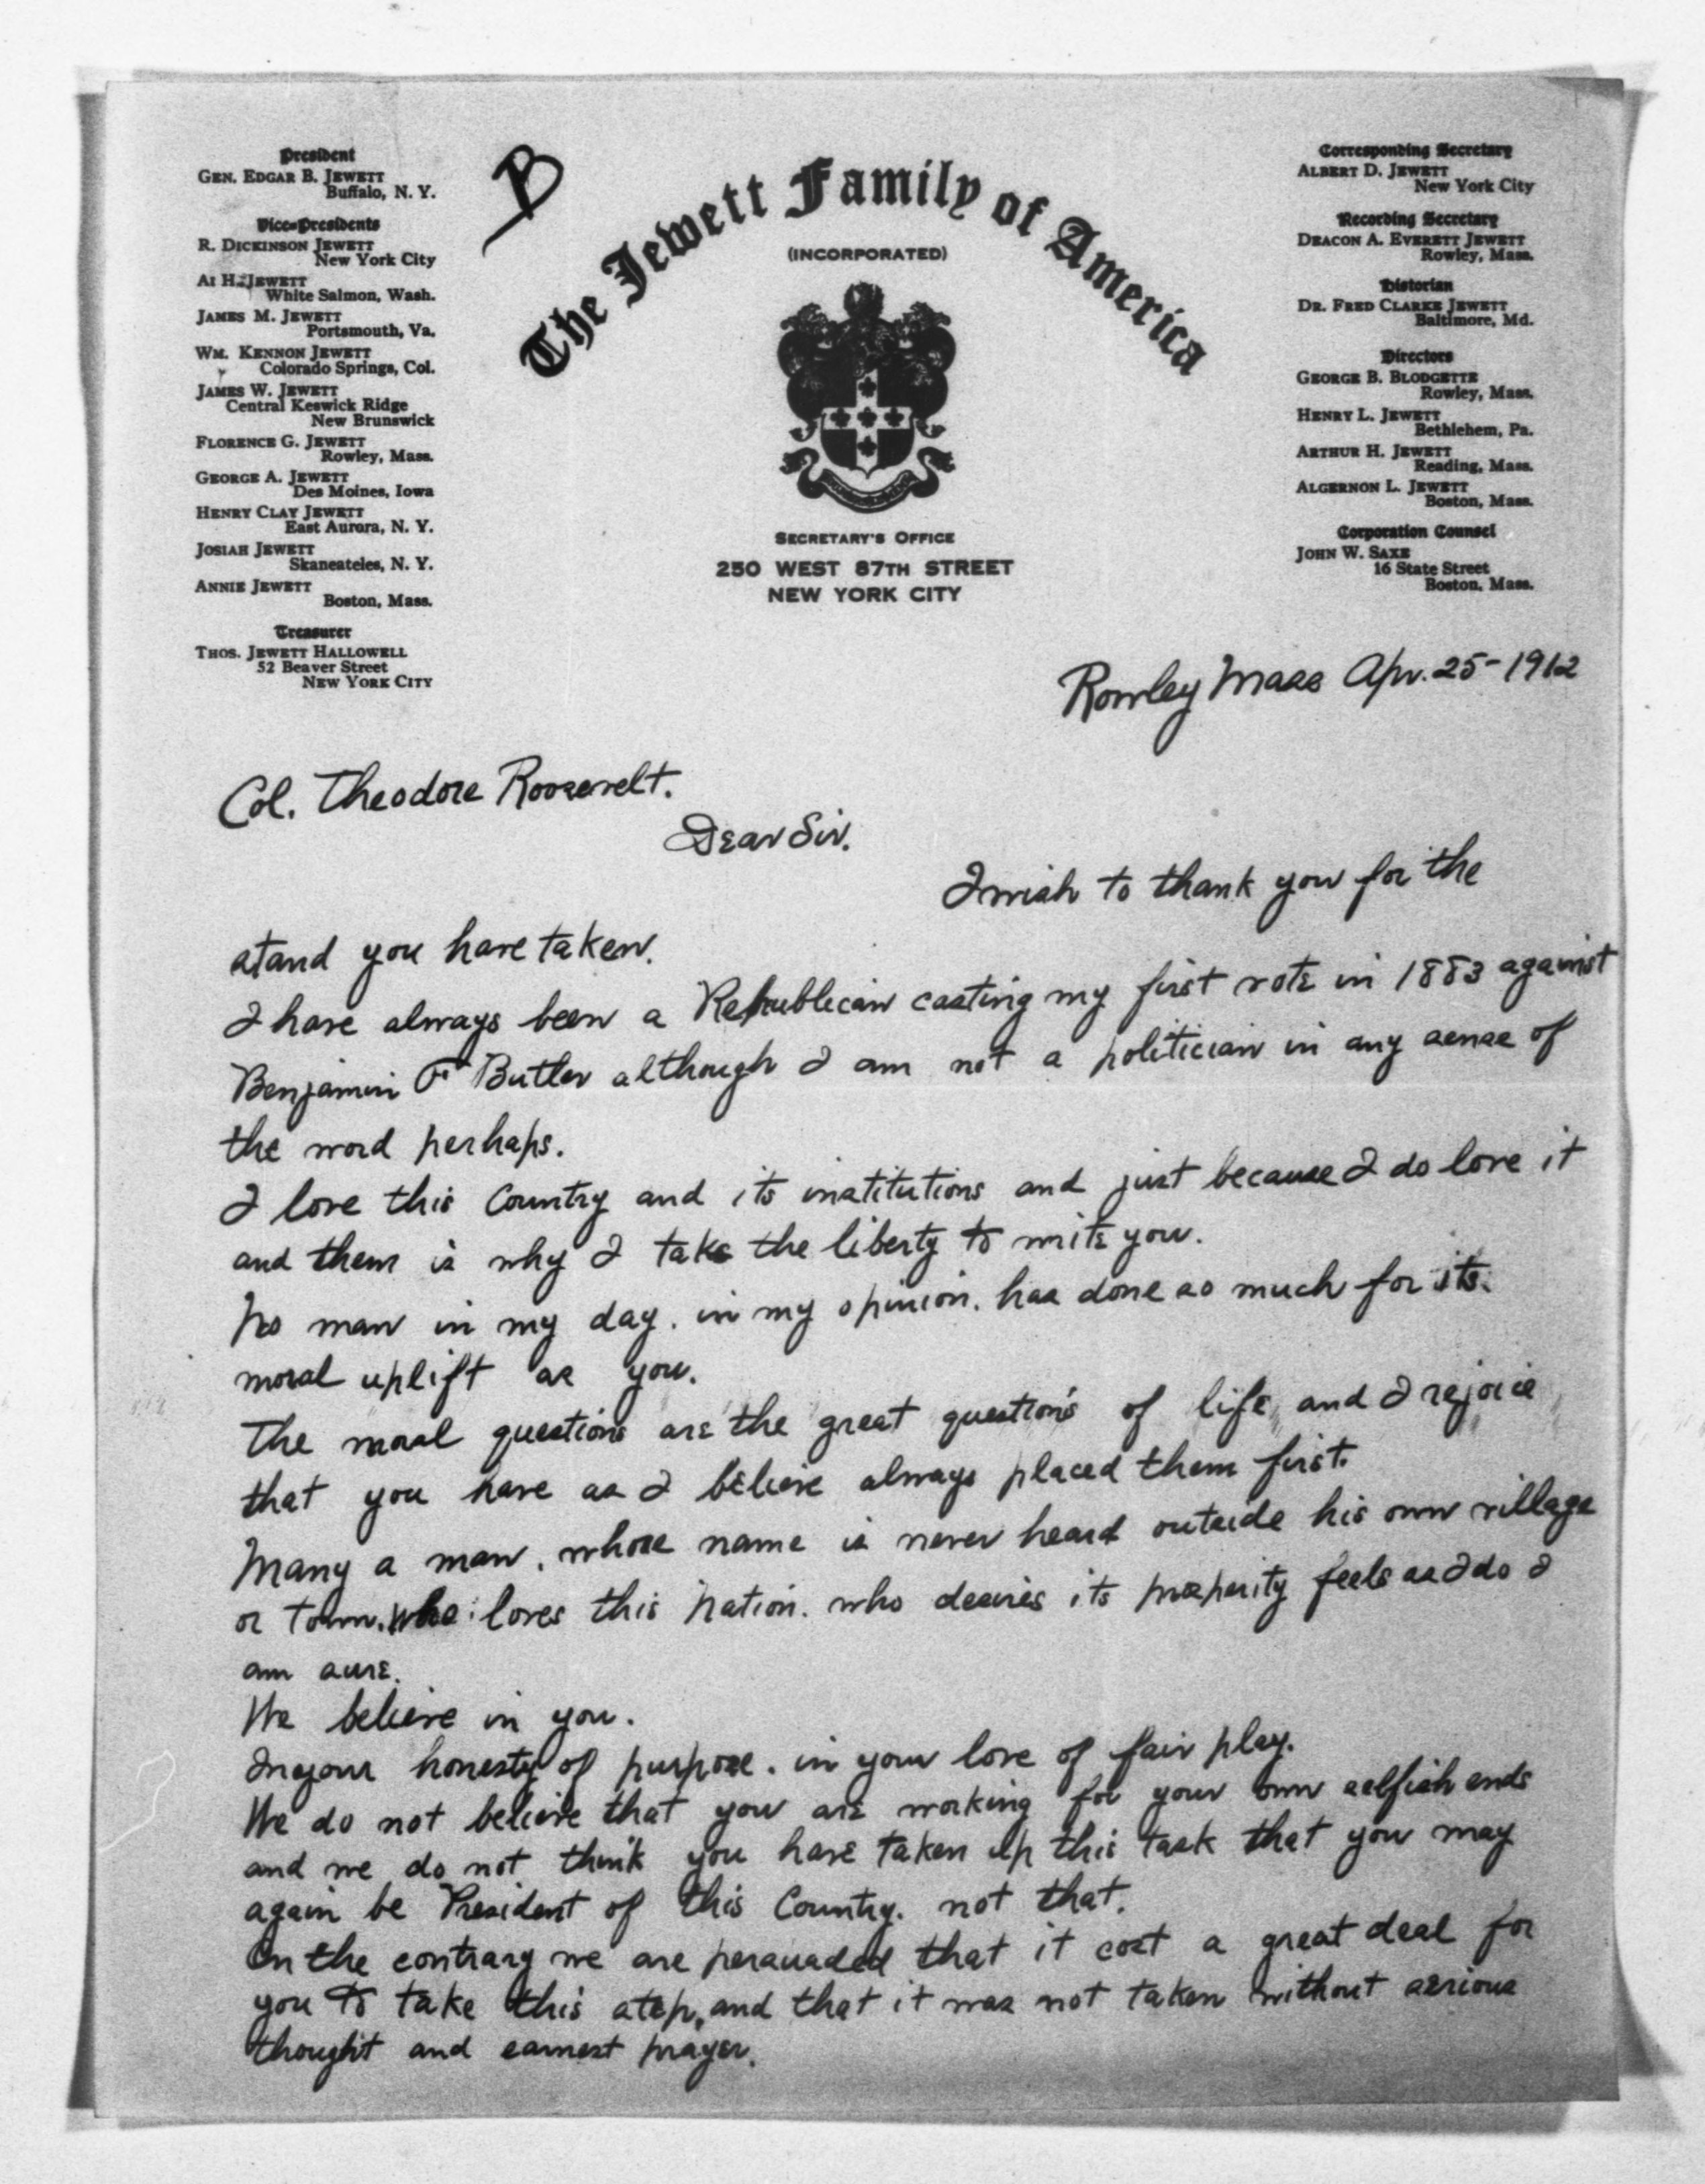 President
GEN. EDGAR B. JEWETT
Buffalo, N. Y.
Vice-Presidents
R. DICKINSON JEWETT
New York City
AI H. JEWETT
White Salmon, Wash.
JAMES M. JEWETT
Portsmouth, Va.
WM. KENNON JEWETT
Colorado Springs, Col.
JAMES W. JEWETT
Central Keswick Ridge
New Brunswick
FLORENCE G. JEWETT
Rowley, Mass.
GEORGE A. JEWETT
Des Moines, Iowa
HENRY CLAY JEWETT
East Aurora, N. Y.
JOSIAH JEWETT
Skaneateles, N. Y.
ANNIE JEWETT
Boston, Mass.
Treasurer
THOS. JEWETT HALLOWELL
52 Beaver Street
NEW YORK CITY
B
The Jewett Family of America
(INCORPORATED)
SECRETARY'S OFFICE
250 WEST 87TH STREET
NEW YORK CITY
Corresponding Secretary
ALBERT D. JEWETT
New York City
Recording Secretary
DEACON A. EVERETT JEWETT
Rowley, Mass.
Historian
DR. FRED CLARKE JEWETT
Baltimore, Md.
Directors
GEORGE B. BLODGETTE
Rowley, Mass.
HENRY L. JEWETT
Bethlehem, Pa.
ARTHUR H. JEWETT
Reading, Mass.
ALGERNON L. JEWETT
Boston, Mass.
Corporation Counsel
JOHN W. SAXE
16 State Street
Boston, Mass.
Rowley Mass Apr. 25-1912
Col. Theodore Roosevelt.
Dear Sir.
I wish to thank you for the
stand you have taken.
I have always been a Republican casting my first vote in 1883 against
Benjamin F Butler although I am not a politician in any sense of
the word perhaps.
I love this Country and its institutions and just because I do love it
and them is why I take the liberty to write you.
No man in my day. in my opinion. has done so much for its.
moral uplift as you.
The moral questions are the great questions of life, and I rejoice
that you have as I believe always placed them first.
Many a man. whose name is never heard outside his own village
or town. who loves this Nation. who desires its prosperity feels as I do I
am sure.
We believe in you.
In your honesty of purpose. in your love of fair play.
We do not believe that you are working for your own selfish ends
and we do not think you have taken up this task that you may
again be President of this Country. not that.
On the contrary we are persuaded that it cost a great deal for
you to take this step, and that it was not taken without serious
thought and earnest prayer.